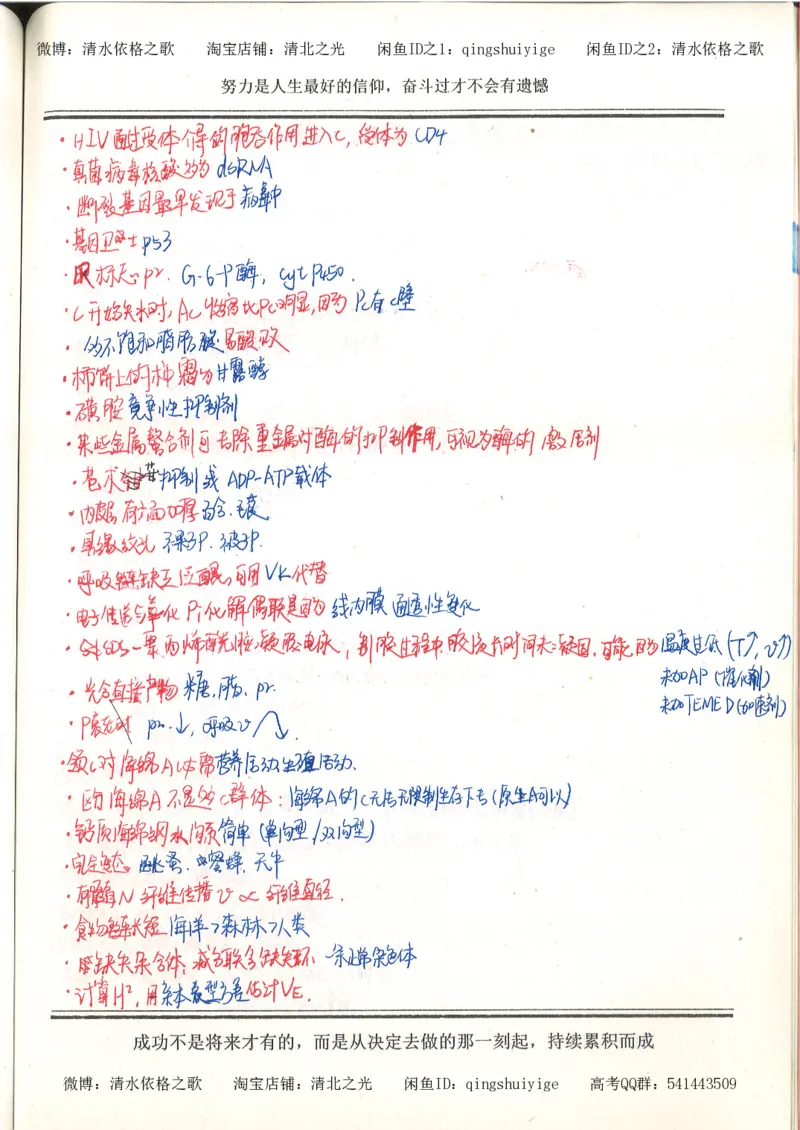 微博：清水依格之歌 淘宝店铺：清北之光 闲鱼ID之1：qingshuiyige 闲鱼ID之2：清水依格之歌
努力是人生最好的信仰，奋斗过才不会有遗憾
·HIV通过受体介导的胞吞作用进入C，受体为CD4
·真菌病毒核酸多为dsRNA
·断裂基因最早发现于病毒中
·基因卫士p53
·标志pr. G-6-P酶, cyt P450.
·C开始失水时，AC收缩比PC明显，因为PC有C壁
·多不饱和脂肪酸易酸败
·柿饼上的柿霜为甘露醇
·磺胺 竞争性抑制剂
·某些金属螯合剂可去除重金属对酶的抑制作用，可视为酶的激活剂
·苍术苷 抑制 ADP-ATP载体
·内皮层 有六面加厚
·具缘纹孔 裸子P. 被子P.
·呼吸链缺乏泛醌，可用VK代替
·电子传递与氧化Pi化解偶联是因为 线内膜通透性变化
·SDS-聚丙烯酰胺凝胶电泳，制胶过程中胶液长时间未凝固，可能因为温度过低(T↑, v↑)
未加AP(催化剂)
未加TEMED(加速剂)
·光合直接产物 糖、脂、pr.
·P衰老时 pr.↓, 呼吸v
·领C对海绵A 营养活动、生殖活动.
·因海绵A不是多C群体：海绵A的C无法无限制生存下去(原生A可以)
·钙质海绵纲水沟系简单(单沟型/双沟型)
·完全变态 跳蚤、蜜蜂、天牛
·有髓N纤维传播v∝纤维直径.
·食物链长短 海洋>森林>人类
·缺失杂合体，减分联会缺失环 一条正常染色体
·计算H², 用亲本表型方差估计VE.
成功不是将来才有的，而是从决定去做的那一刻起，持续累积而成
微博：清水依格之歌 淘宝店铺：清北之光 闲鱼ID：qingshuiyige 高考QQ群：541443509